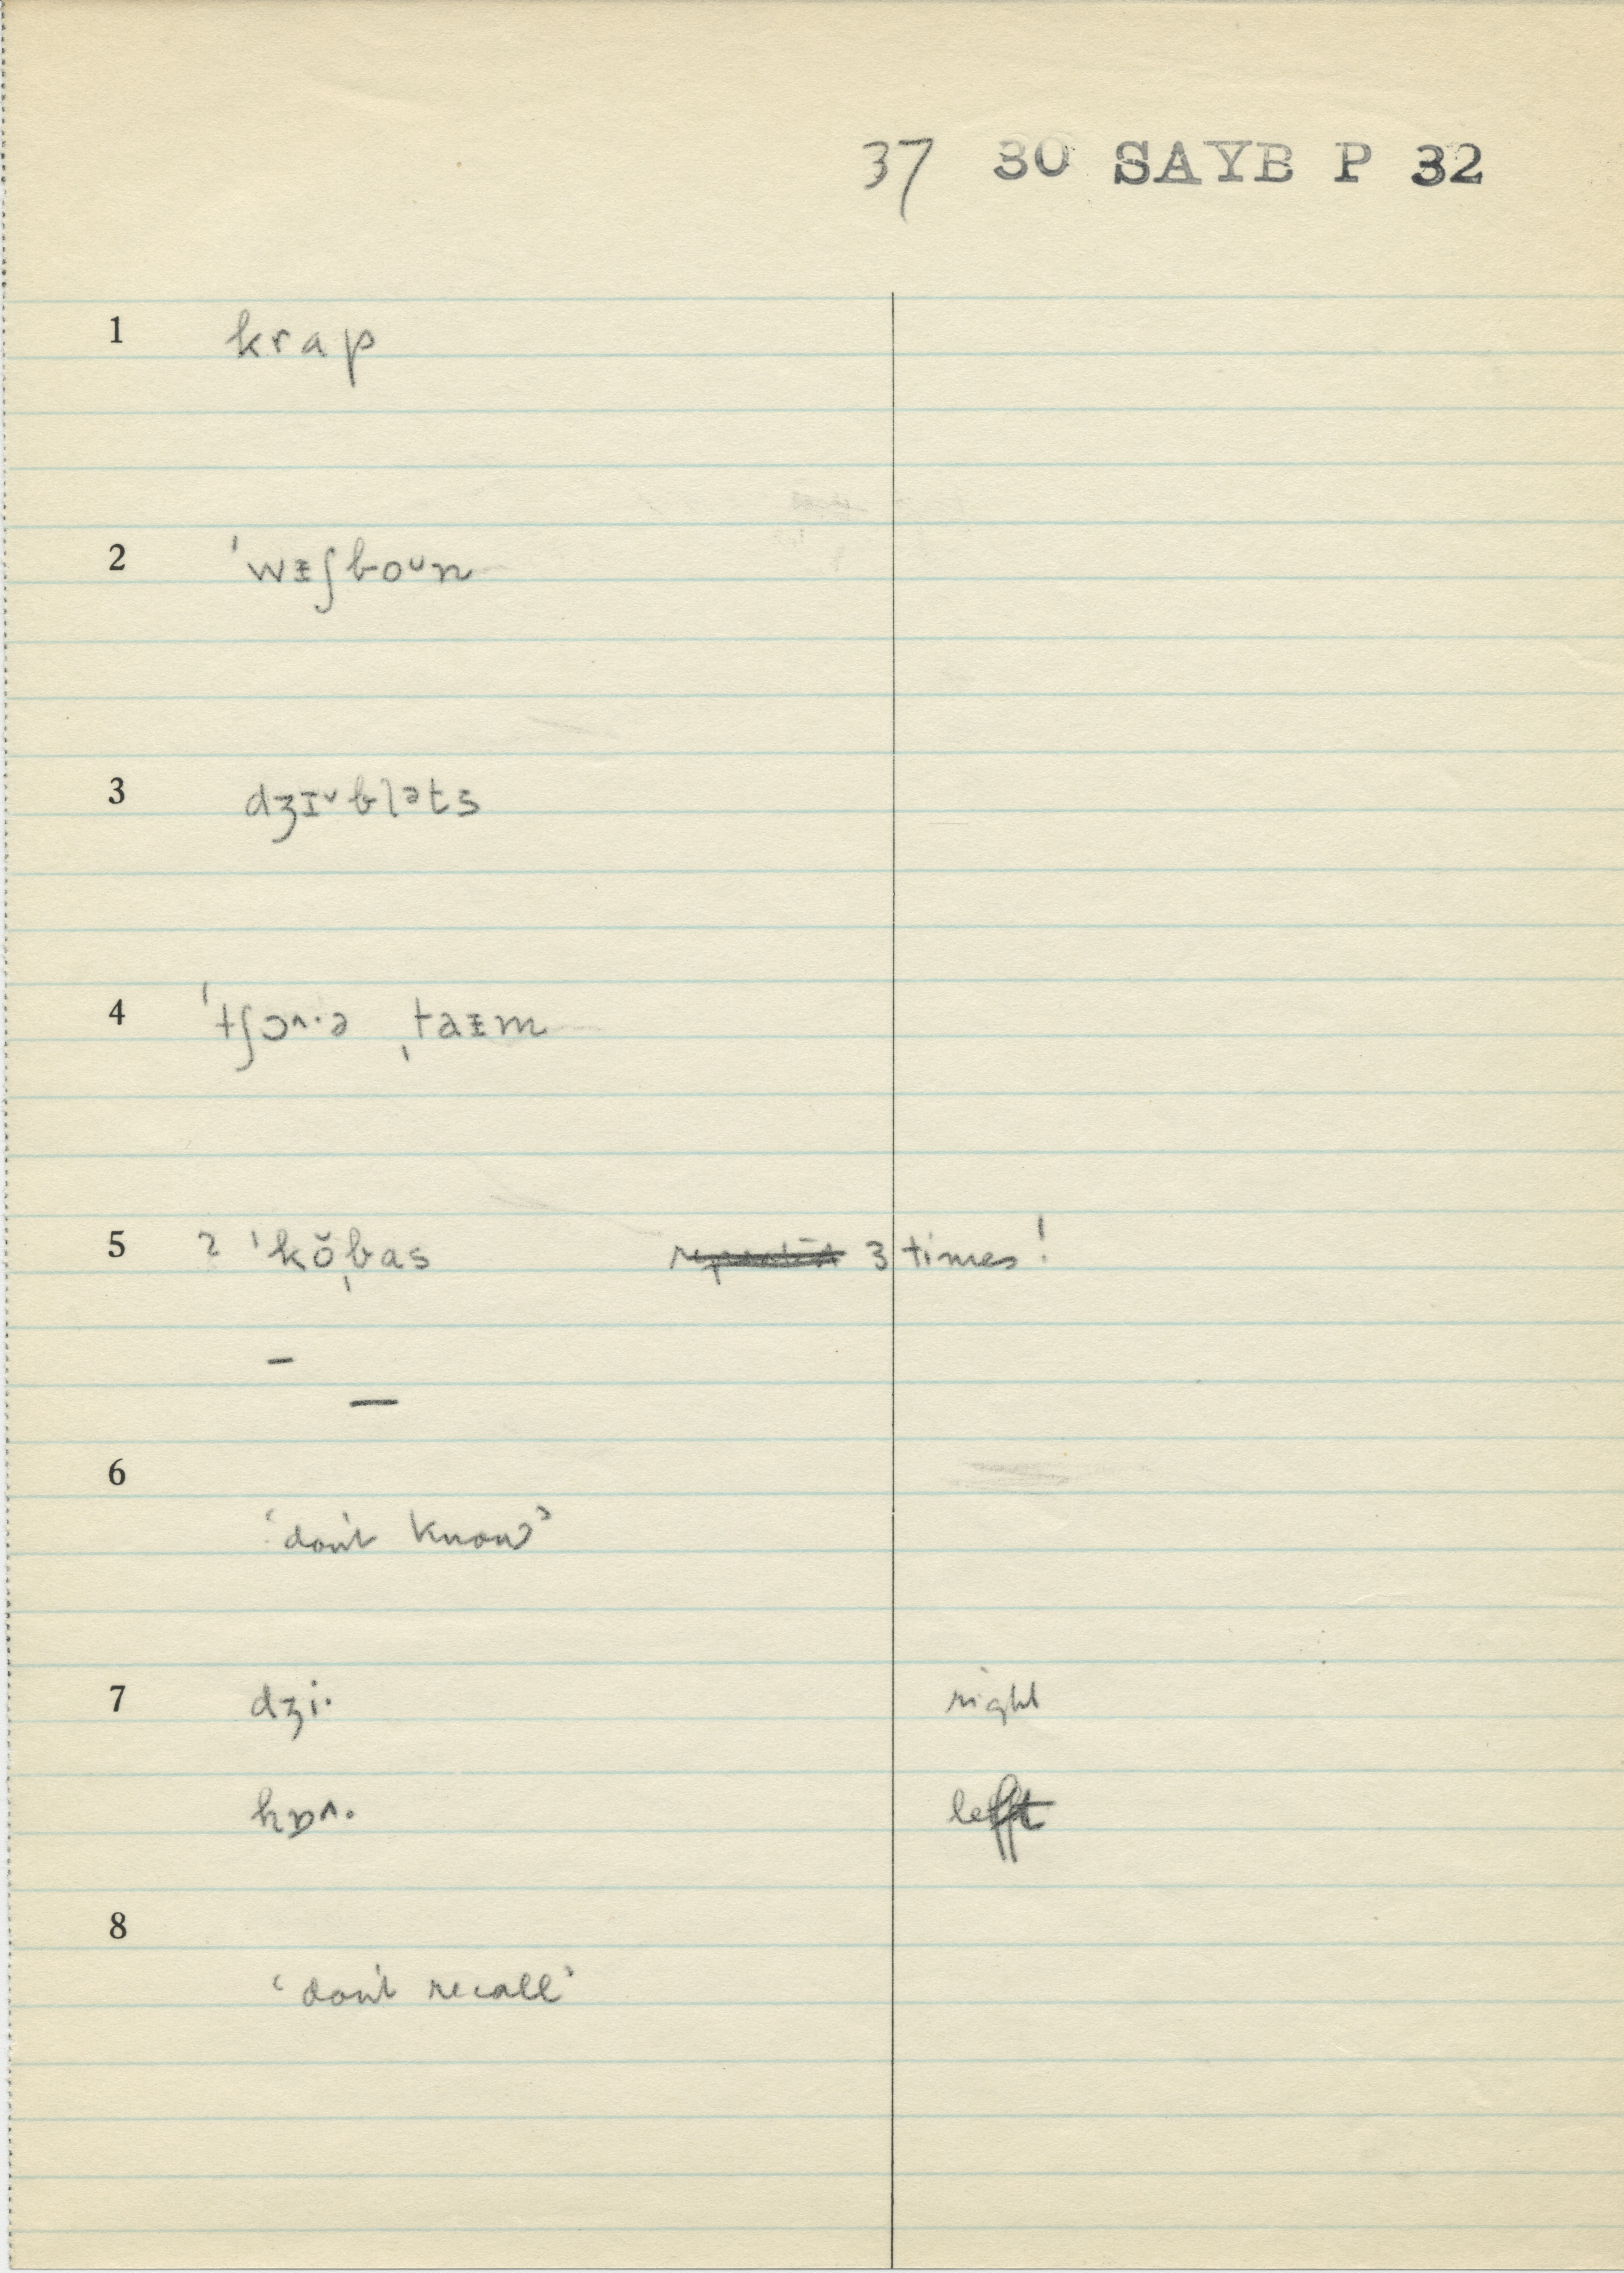 37 30 SAYB P 32
1 krap
2 ˈwᵻʃboᴜn
3 dʒɪ˅bləts
4 ˈtʃɔ˄·ə ˌtaᵻm
5 ? ˈkŏˌbas 3 times!
–
—
6
‘don't know’
7 dʒi· right
hɒ˄· left
8
‘don't recall’